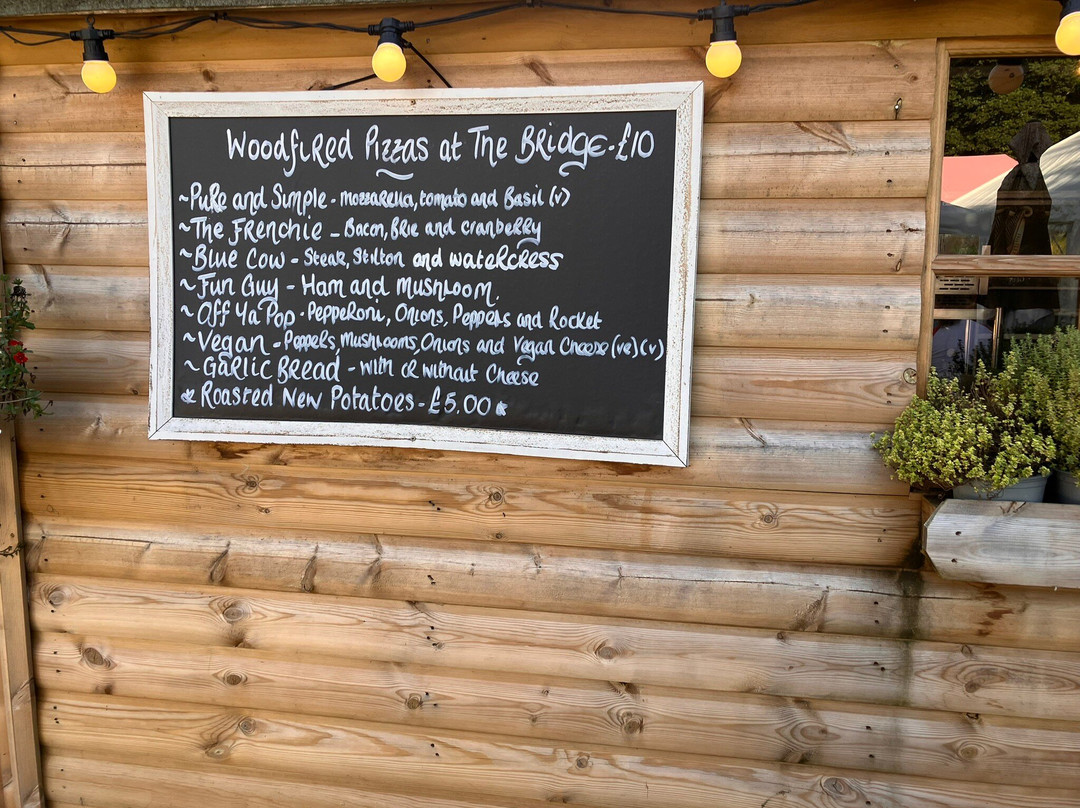 Woodfired Pizzas at The Bridge - £10
~Pure and Simple - mozzarella, tomato and Basil (v)
~The Frenchie - Bacon, Brie and cranberry
~Blue Cow - Steak, Stilton and watercress
~Fun Guy - Ham and mushroom.
~Off Ya Pop - Pepperoni, Onions, Peppers and Rocket
~Vegan - Peppers, Mushrooms, Onions and Vegan Cheese (ve)(v)
~Garlic Bread - with or without Cheese
* Roasted New Potatoes - £5.00 *